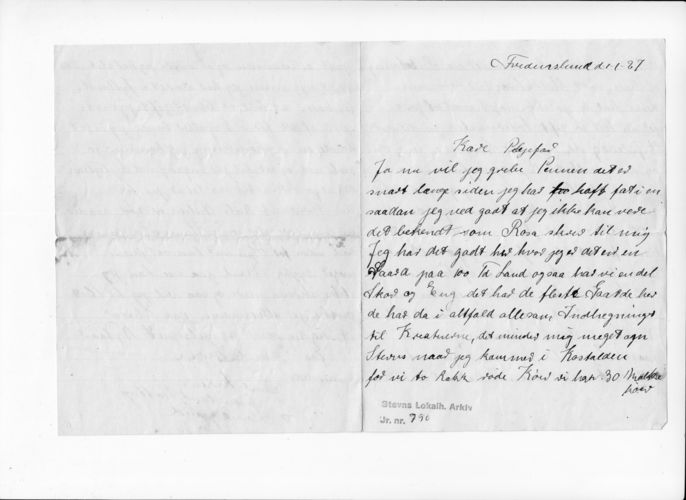 Frederikslund d. 1-1-27
Kære Plejefar
Ja nu vil jeg gribe Pennen det er
snart længe siden jeg har haft fat i en
saadan jeg ved godt at jeg ikke kan være
det bekendt som Rosa skrev til mig
Jeg har det godt her hvor jeg er det er en
Gaard paa 100 Td Land ogsaa har vi en del
Skov og Eng det har de fleste Gaarde her
de har da i altfald allesam Indhegning
til Kreaturerne, det minder mig meget om
Stevns naar jeg kommer i Kostalden
for vi to røde Køer vi har 30 Malke
køer
Stevns Lokalh. Arkiv
Jr. nr. 790